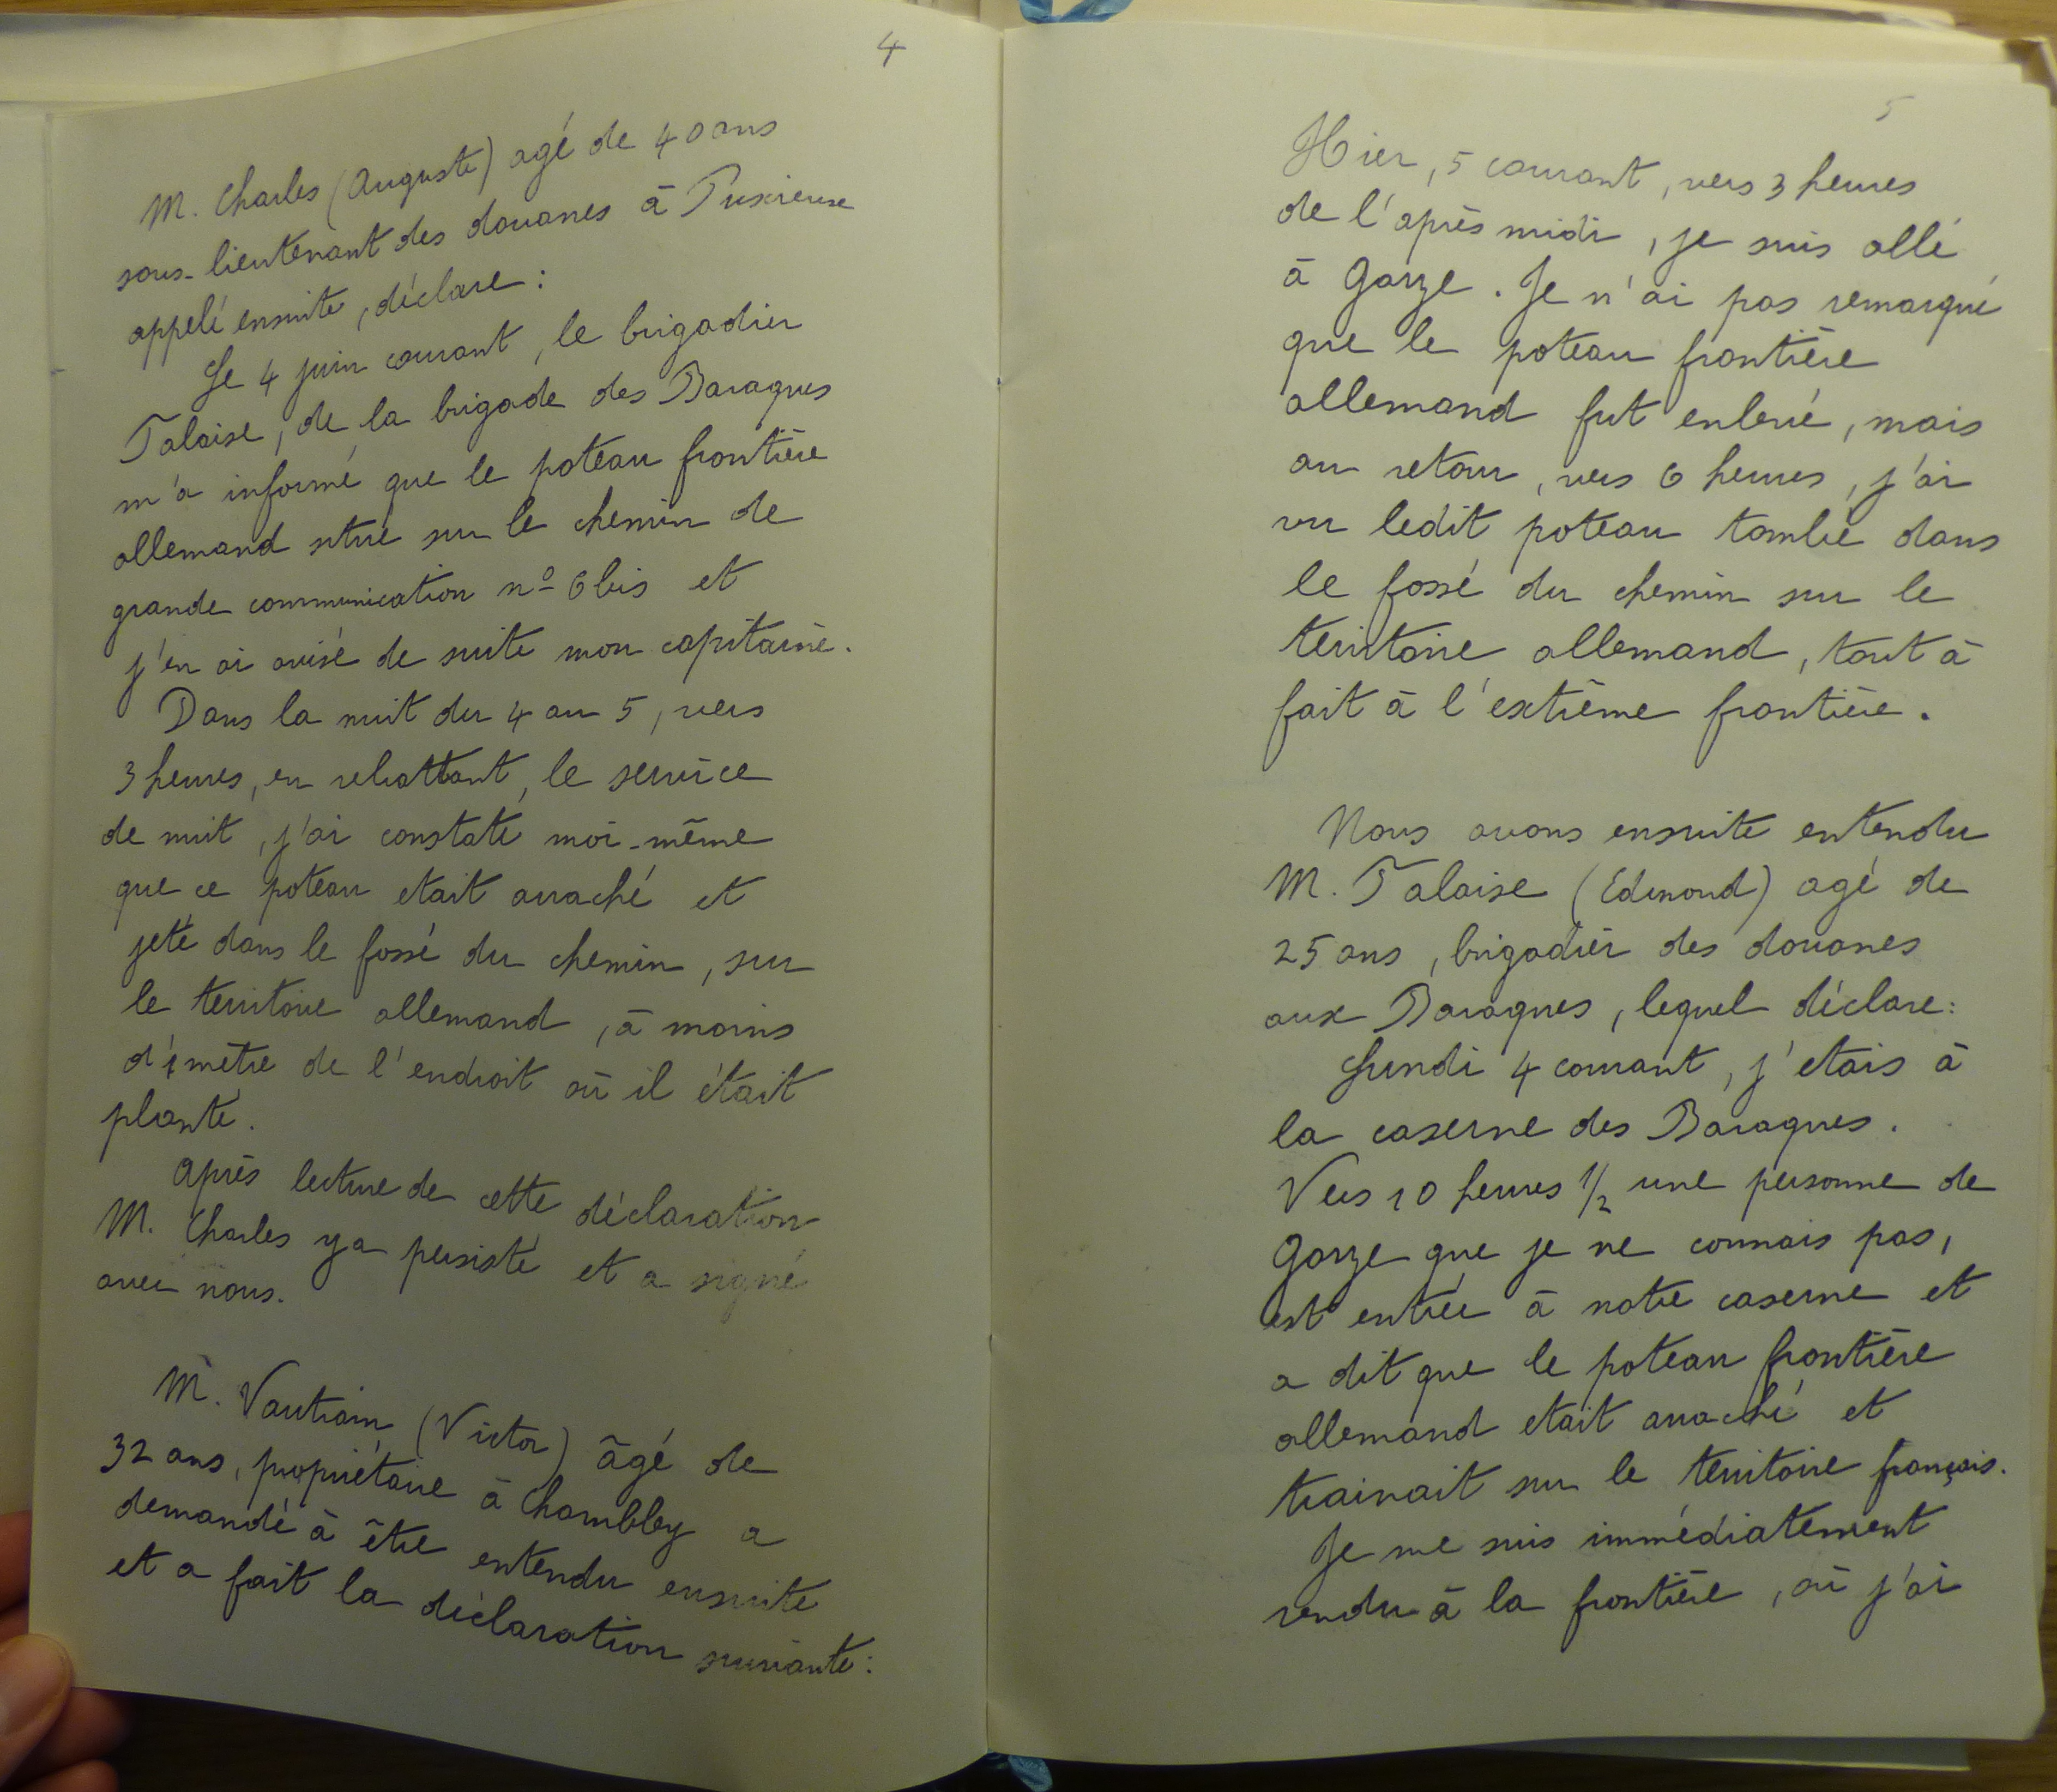 4
M. Charles (Auguste) agé de 40 ans
sous-lieutenant des douanes à Puxieux
appelé ensuite, déclare :
Le 4 juin courant, le brigadier
Talaise, de la brigade des Baraques
m'a informé que le poteau frontière
allemand situé sur le chemin de
grande communication nº 6 bis et
j'en ai avisé de suite mon capitaine.
Dans la nuit du 4 au 5, vers
3 heures, en rebattant, le service
de nuit, j'ai constaté moi-même
que ce poteau etait arraché et
jeté dans le fossé du chemin, sur
le territoire allemand, à moins
d'1 mètre de l'endroit où il était
planté.
Après lecture de cette déclaration
M. Charles y a persisté et a signé
avec nous.
M. Vautrain (Victor) âgé de
32 ans, propriétaire à Chambley a
demandé à être entendu ensuite
et a fait la déclaration suivante :
5
Hier, 5 courant, vers 3 heures
de l'après midi, je suis allé
à Gorze. Je n'ai pas remarqué
que le poteau frontière
allemand fut enlevé, mais
au retour, vers 6 heures, j'ai
vu ledit poteau tombé dans
le fossé du chemin sur le
territoire allemand, tout à
fait à l'extrême frontière.
Nous avons ensuite entendu
M. Talaise (Edmond) agé de
25 ans, brigadier des douanes
aux Baraques, lequel déclare :
Lundi 4 courant, j'etais à
la caserne des Baraques.
Vers 10 heures 1/2 une personne de
Gorze que je ne connais pas,
est entrée à notre caserne et
a dit que le poteau frontière
allemand etait arraché et
trainait sur le territoire français.
Je me suis immédiatement
rendu à la frontière, où j'ai